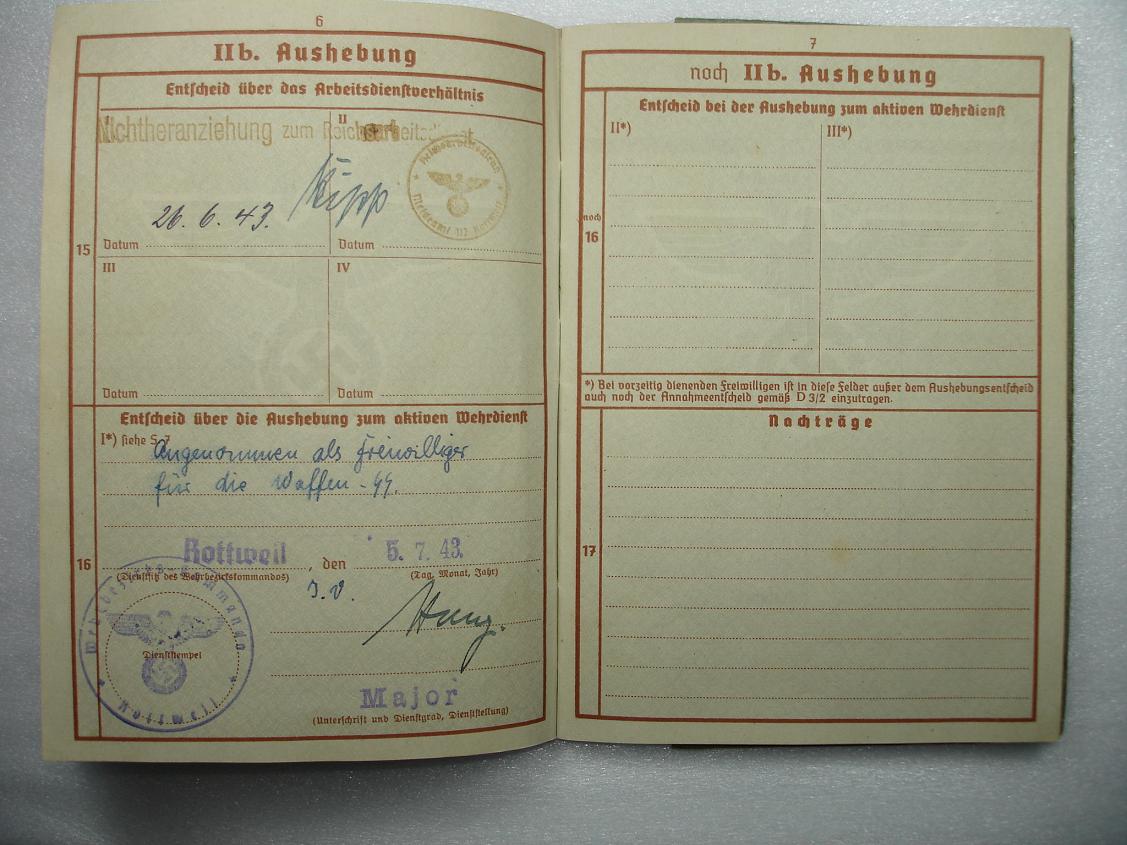 6
IIb. Aushebung
Entscheid über das Arbeitsdienstverhältnis
Nichtheranziehung zum Reichsarbeitsdienst
II
26. 6. 43.
Reichsarbeitsdienst
Meldeamt
15
Datum
Datum
III
IV
Datum
Datum
Entscheid über die Aushebung zum aktiven Wehrdienst
I*) siehe S. 7
Angenommen als Freiwilliger
für die Waffen-SS.
16
Rottweil, den 5. 7. 43.
(Dienstsitz des Wehrbezirkskommandos) (Tag, Monat, Jahr)
I.V.
Wehrbezirks-Kommando
Dienststempel
Rottweil
Major
(Unterschrift und Dienstgrad, Dienststellung)
7
noch IIb. Aushebung
Entscheid bei der Aushebung zum aktiven Wehrdienst
II*)
III*)
noch
16
*) Bei vorzeitig dienenden Freiwilligen ist in diese Felder außer dem Aushebungsentscheid
auch noch der Annahmeentscheid gemäß D 3/2 einzutragen.
Nachträge
17